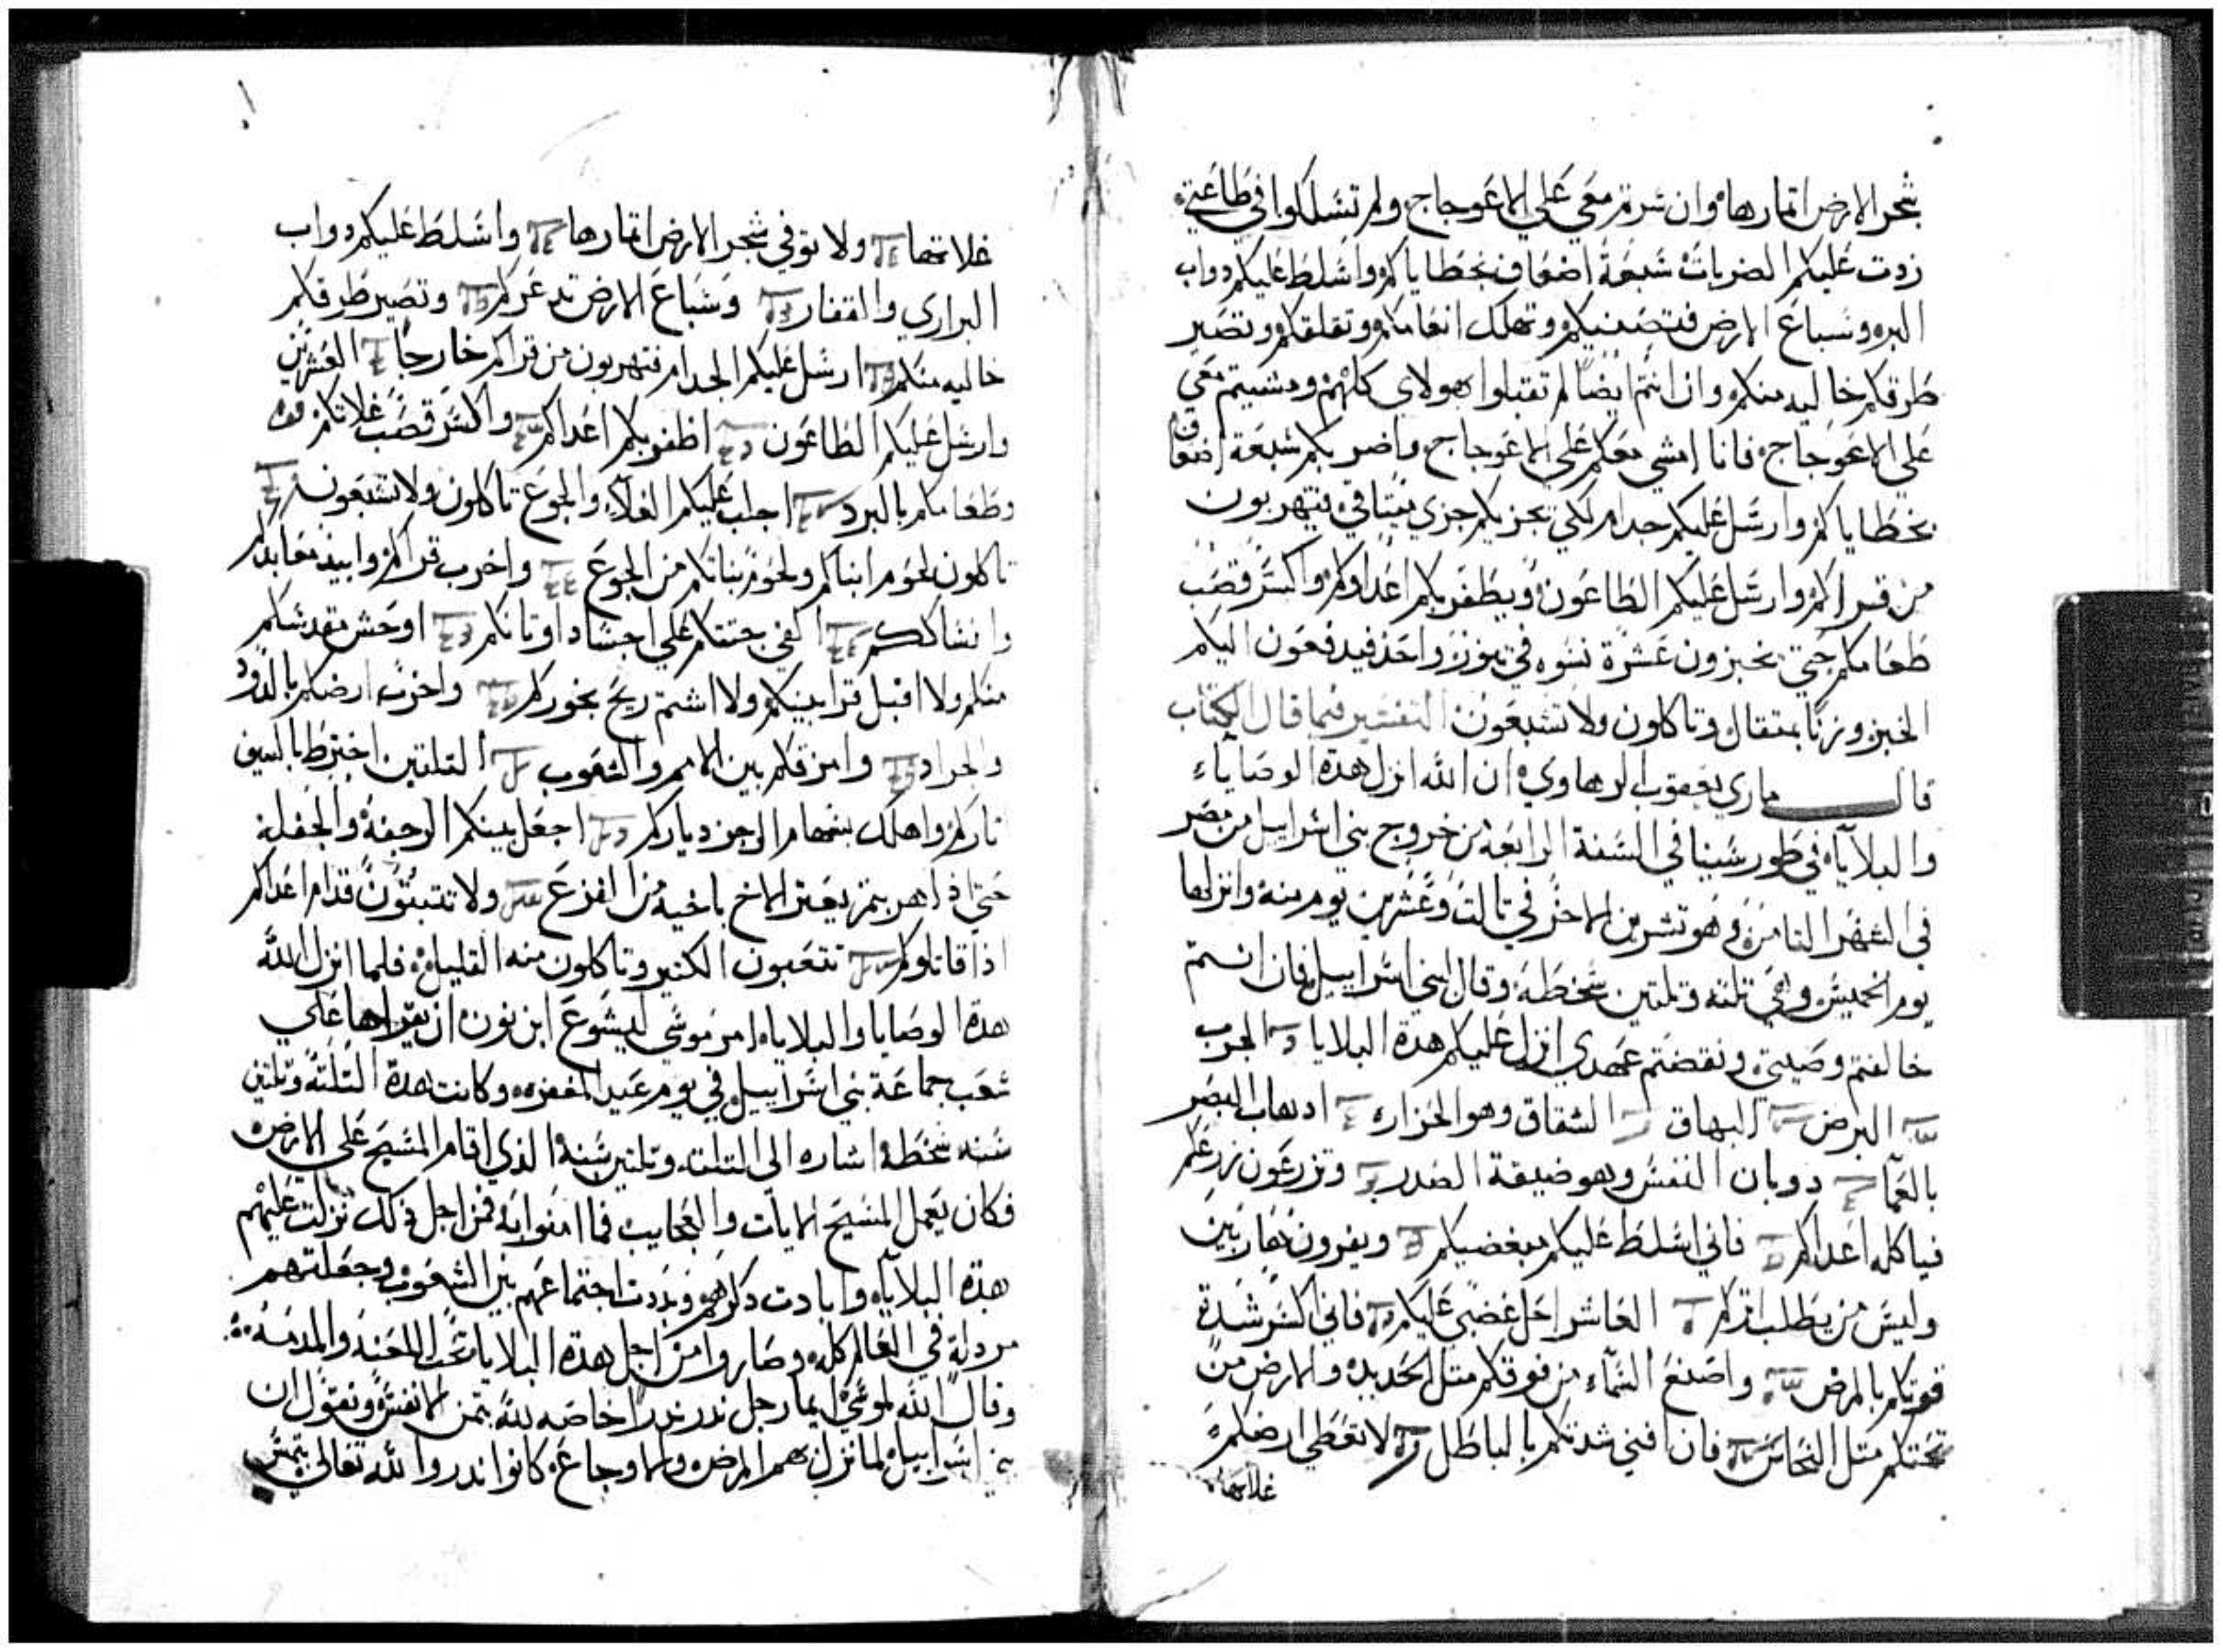 شجر الارض اتمارها وان سرتم معي علي الاعوجاج ولم تسلكوا في طاعتي
زدت عليكم الضربات سبعة اضعاف بخطاياكم واسلط عليكم دواب
البر وسباع الارض وتهلك انعامكم وتقلقكم وتصير
طرقكم خاليه منكم وان انتم ايضا لم تقبلوا هولاي كلهم ومشيتم معي
علي الاعوجاج فانا امشي معكم علي الاعوجاج واضربكم سبعة اضعاف
بخطاياكم وارسل عليكم جدام لكي تجزيكم جزي ميتاقي فتهربون
من قراكم وارسل عليكم الطاعون ويظفر بكم اعداوكم واكسر قصب
طعامكم حتي يخبزون عشرة نسوه في تنور واحد فيدفعون اليكم
الخبز وزنا بمتقال وتاكلون ولا تشبعون التفسير فيما قال الكتاب
قال ماري يعقوب الرهاوي ان الله انزل هده الوصاياء
والبلاياه في طور سينا في السنة الرابعه من خروج بني اسراييل من مصر
في الشهر التامن وهو تشرين الاخر في تالت وعشرين يوم منه وانزلها
يوم الخميس وهي تلته وتلتين سخطه وقال لبني اسراييل فان انتم
خالفتم وصيتي ونقضتم عهدي انزل عليكم هدة البلايا الجرب
البرص البهاق الشقاق وهو الحزاز ادهاب البصر
بالعما دوبان النفس وهو ضيقة الصدر وتزرعون زرعكم
فياكله اعداكم فاني اسلط عليكم مبغضيكم ويفرون هاربين
وليس من يطلب اتركم العاشر احل غضبي عليكم فاني اكسر شدة
قوتكم بالمرض واصنع السماء من فوقكم متل الحديد والارض من
تحتكم متل النحاس فان افني شدتكم بالباطل لا تعطي ارضكم
غلاتها
غلاتها ولا توفي شجر الارض اتمارها واسلط عليكم دواب
البراري والقفار وسباع الارض تدعركم وتصير طرقكم
خاليه منكم ارسل عليكم الجدام فتهربون من قراكم خارجا العشرين
وارسل عليكم الطاعون اظفر بكم اعداكم واكسر قصب غلاتكم
وطعامكم بالبرد اجلب عليكم الغلاء والجوع تاكلون ولا تشبعون
تاكلون لحوم ابناكم ولحوم بناتكم من الجوع واخرب قراكم وابيد معابدكم
وانساككم القي جتتكم علي اجساد اوتانكم اوحش مقدسكم
منكم ولا اقبل قرابينكم ولا اشتم ريح بخوركم واخرب ارضكم بالدود
والجراد وامزقكم بين الامم والشعوب التلتين اخترط بالسيف
تاركم واهلك بسهام الرجز دياركم اجعل بينكم الرجفة والجفلة
حتي ادا هربتم يعتر الاخ باخيه من الفزع ولا تتبتون قدام اعداكم
ادا قاتلوكم تتعبون الكتير وتاكلون منه القليل فلما انزل الله
هدة الوصايا والبلاياه امر موسي ليشوع ابن نون ان يقراها علي
شعب جماعة بني اسراييل في يوم عيد المغفره وكانت هدة التلتة وتلتين
سخطة اشاره الي التلت وتلتين سنة الذي اقام المسيح علي الارض
فكان يعمل المسيح الايات والعجايب فما امنوا به فمن اجل دلك نزلت عليهم
هدة البلاياه وابادت دكرهم وبددت اجتماعهم بين الشعوب وجعلتهم
مردلة في العالم كله وصاروا من اجل هدة البلايا تحت اللعنة والمدمة
وقال الله لموسي ايما رجل ندر ندرا خاصه لله بتمن الانفس ونقول ان
بني اسراييل لما نزل بهم المرض والاوجاع كانوا ندروا لله تعالي بتمن